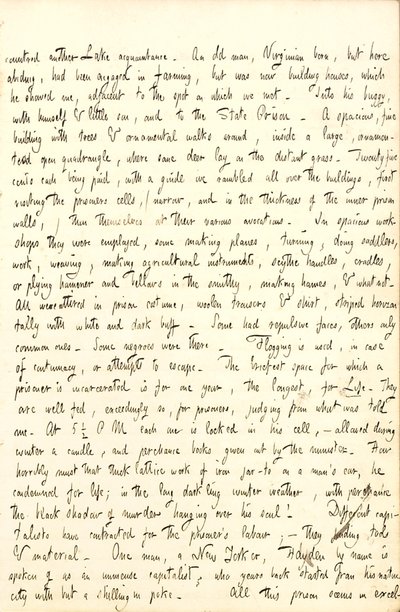 countered another Lake acquaintance. An old man, Virginian born, but here
abiding, had been engaged in farming, but was now building houses, which
he showed me, adjacent to the spot on which we met. Into his buggy,
with himself & little son, and to the State Prison. A spacious, fine
building with trees & ornamental walks around, inside a large, ornamen-
ted open quadrangle, where some deer lay on the distant grass. Twenty five
cents each being paid, with a guide we rambled all over the buildings, first
visiting the prisoners cells, / narrow, and in the thickness of the inner prison
walls, / then themselves at their various avocations. In spacious work-
shops they were employed, some making planes, turning, doing saddlers,
work, weaving, making agricultural instruments, scythe handles, cradles
or plying hammer and bellows in the smithy, making hames, & what not.
All were attired in prison costume, woolen trousers & shirt, striped horizon
tally with white and dark buff. Some had repulsive faces, others only
common ones. Some negroes were there. Flogging is used, in case
of contumacy, or attempts to escape. The briefest space for which a
prisoner is incarcerated is for one year, the longest, for Life. They
are well fed, exceedingly so, for prisoners, judging from what was told
me. At 5 1/2 P M each one is locked in his cell, – allowed during
winter a candle, and perchance books given out by the minister. How
horribly must that thick lattice work of iron jar to on a man's ear, he
condemned for life; in the long darkling winter weather, with perchance
the black shadow of murder hanging over his soul! Different capi-
talists have contracted for the prisoners labour; – they finding tools
& material. One man, a New Yorker, Hayden by name is
spoken of as an immense capitalist; who years back started from his native
city with but a shilling in poke. All this prison seems in excel-